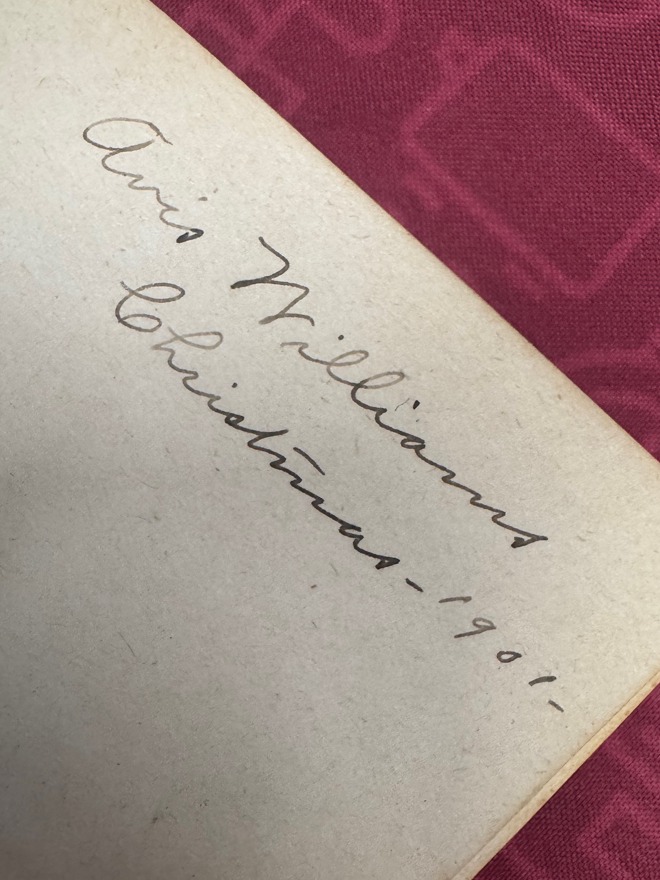 Avis Williams
Christmas - 1901 -